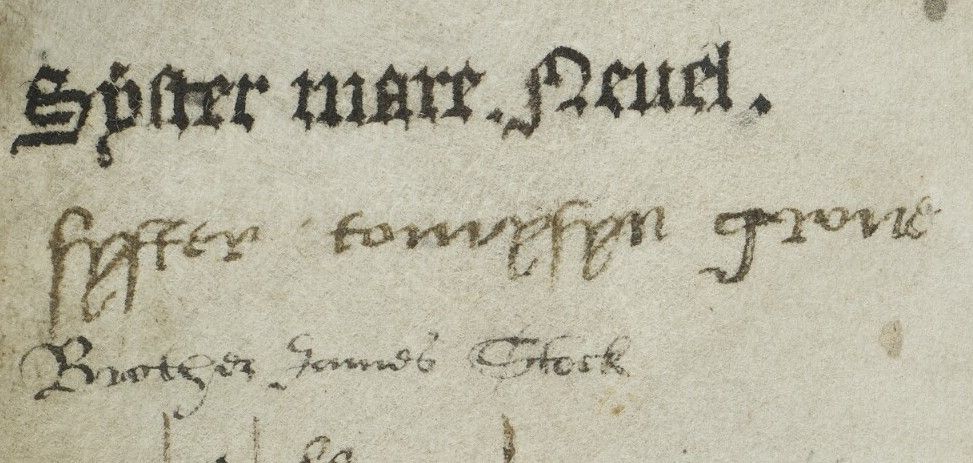 Syster mare. Neuel.
syster tomysyn grove
Brother James Stock